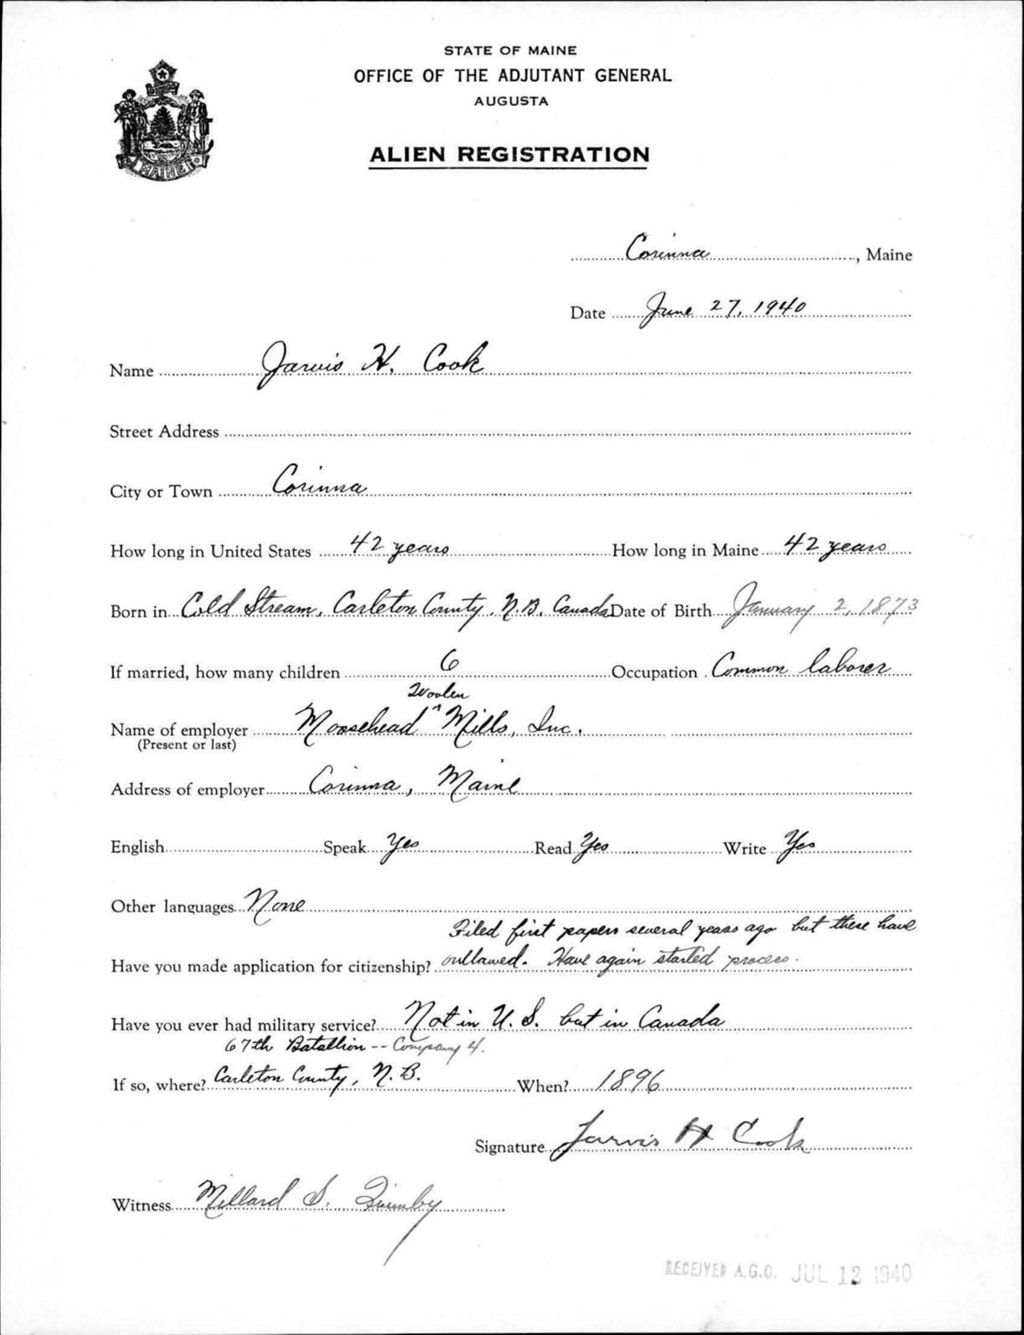 STATE OF MAINE
OFFICE OF THE ADJUTANT GENERAL
AUGUSTA
ALIEN REGISTRATION
MAINE
Corinna, Maine
Date June 27, 1940
Name Jarvis H. Cook
Street Address
City or Town Corinna
How long in United States 42 years How long in Maine 42 years
Born in Cold Stream, Carleton County, N.B. Canada Date of Birth January 2, 1873
If married, how many children 6 Occupation Common laborer
Woolen
Name of employer Moosehead ^ Mills, Inc.
(Present or last)
Address of employer Corinna, Maine
English Speak Yes Read Yes Write Yes
Other languages None
Filed first papers several years ago but these have
Have you made application for citizenship? outlawed. Have again started process.
Have you ever had military service? Not in U.S. but in Canada
67th Batallion -- Company 4.
If so, where? Carleton County, N.B. When? 1896
Signature Jarvis H Cook
Witness Millard S. Quimby
RECEIVED A.G.O. JUL 12 1940